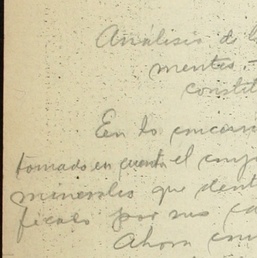 Análisis de l
mentos -
constit
En lo
tomado en cuenta el conju
minerales que dent
ficaes por sus ca
Ahora